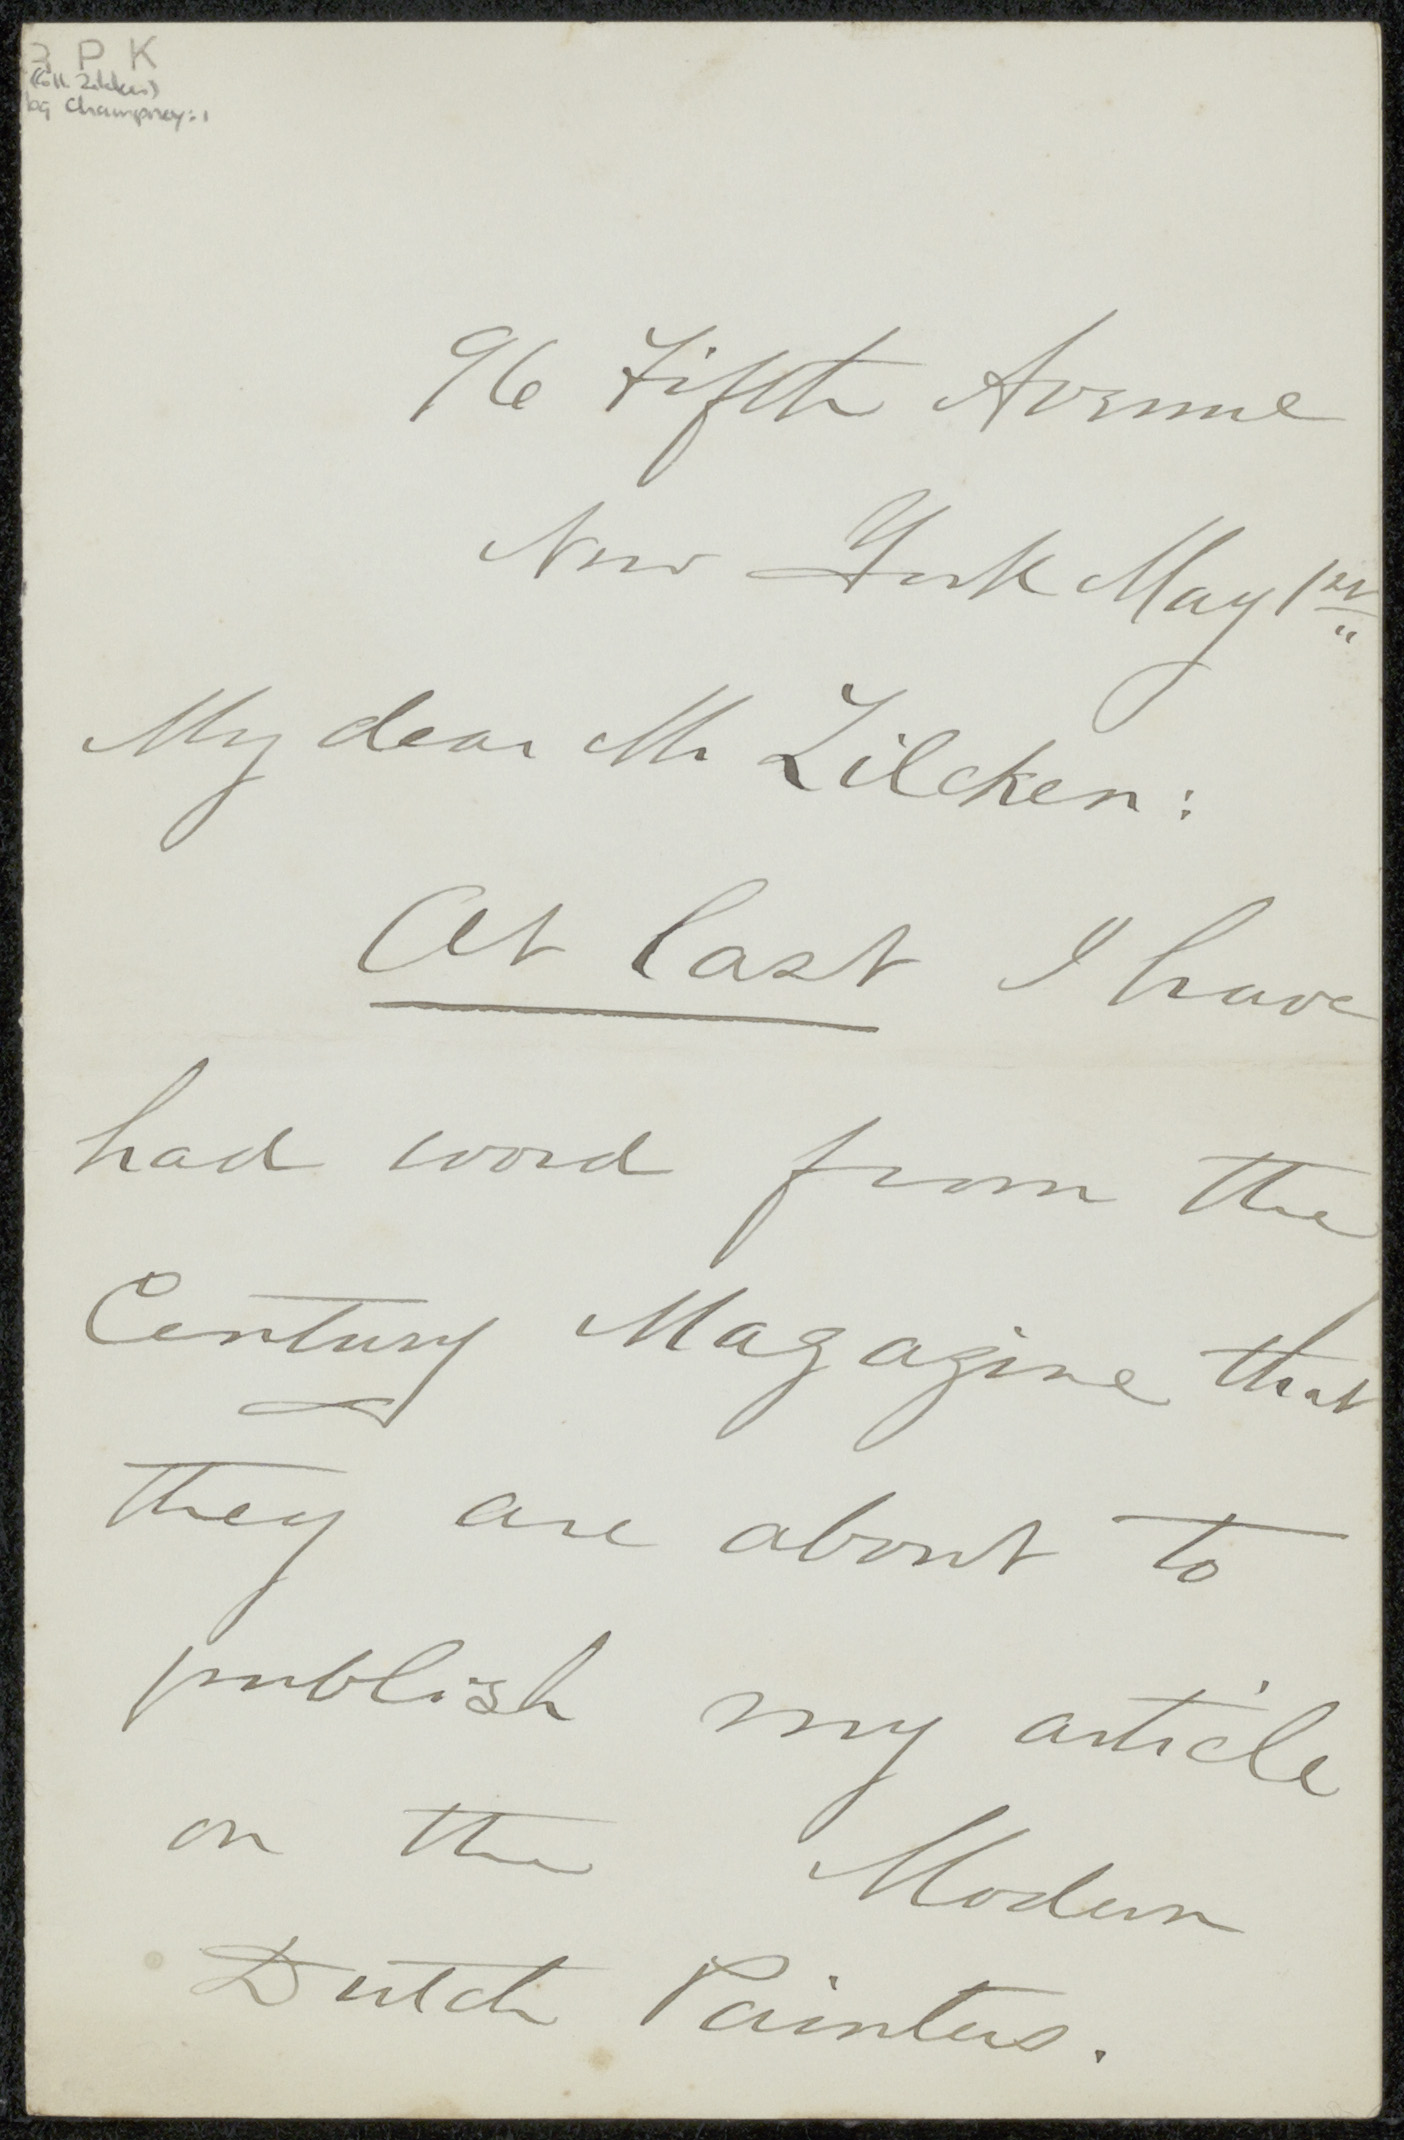 R P K
(Coll. Zilcken)
bg Champney: 1
96 Fifth Avenue
New York May 1st
My dear Mr Zilcken:
At last I have
had word from the
Century Magazine that
they are about to
publish my article
on the Modern
Dutch Painters.